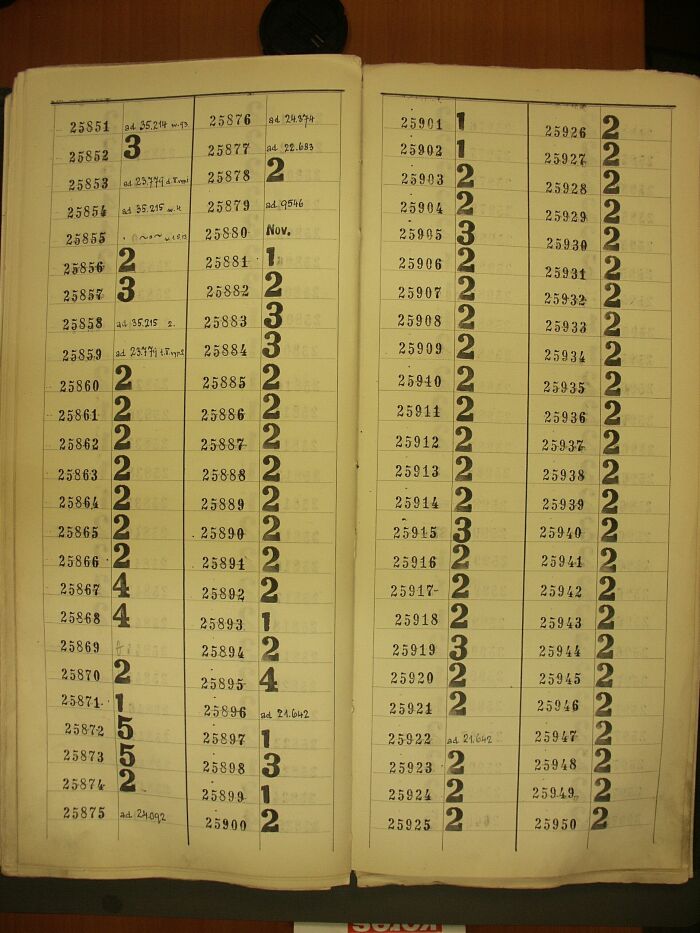 25851 ad 35.214 w.93
25852 3
25853 ad 23.779 d.T.
25854 ad 35.215 w.4
25855
25856 2
25857 3
25858 ad 35.215 2.
25859 ad 23.779 t.T.
25860 2
25861 2
25862 2
25863 2
25864 2
25865 2
25866 2
25867 4
25868 4
25869
25870 2
25871 1
25872 5
25873 5
25874 2
25875 ad 24.092
25876 ad 24.374
25877 ad 22.683
25878 2
25879 ad 9546
25880 Nov.
25881 1
25882 2
25883 3
25884 3
25885 2
25886 2
25887 2
25888 2
25889 2
25890 2
25891 2
25892 2
25893 1
25894 2
25895 4
25896 ad 21.642
25897 1
25898 3
25899 1
25900 2
25901 1
25902 1
25903 2
25904 2
25905 3
25906 2
25907 2
25908 2
25909 2
25910 2
25911 2
25912 2
25913 2
25914 2
25915 3
25916 2
25917 2
25918 2
25919 3
25920 2
25921 2
25922 ad 21.642
25923 2
25924 2
25925 2
25926 2
25927 2
25928 2
25929 2
25930 2
25931 2
25932 2
25933 2
25934 2
25935 2
25936 2
25937 2
25938 2
25939 2
25940 2
25941 2
25942 2
25943 2
25944 2
25945 2
25946 2
25947 2
25948 2
25949 2
25950 2